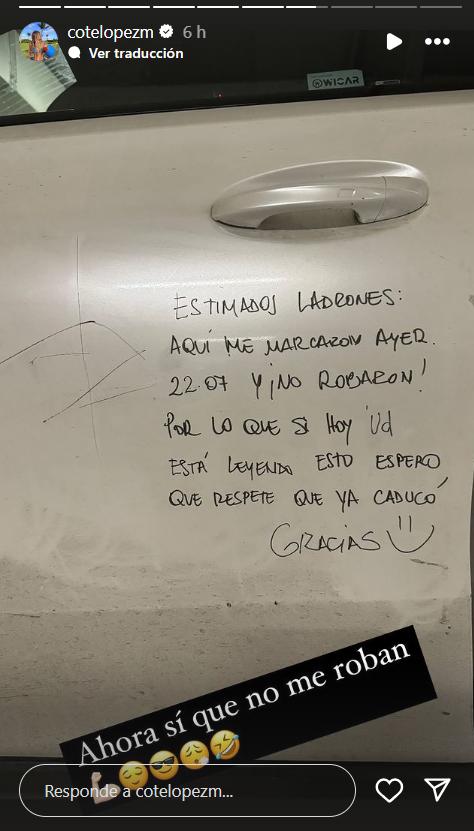 cotelopezm 6 h
Ver traducción
WICAR
ESTIMADOS LADRONES:
AQUÍ ME MARCARON AYER.
22.07 Y ¡NO ROBARON!
POR LO QUE SI HOY Ud
ESTÁ LEYENDO ESTO ESPERO
QUE RESPETE QUE YA CADUCÓ
GRACIAS
Ahora sí que no me roban
💪😌😎😮‍💨🤣
Responde a cotelopezm...